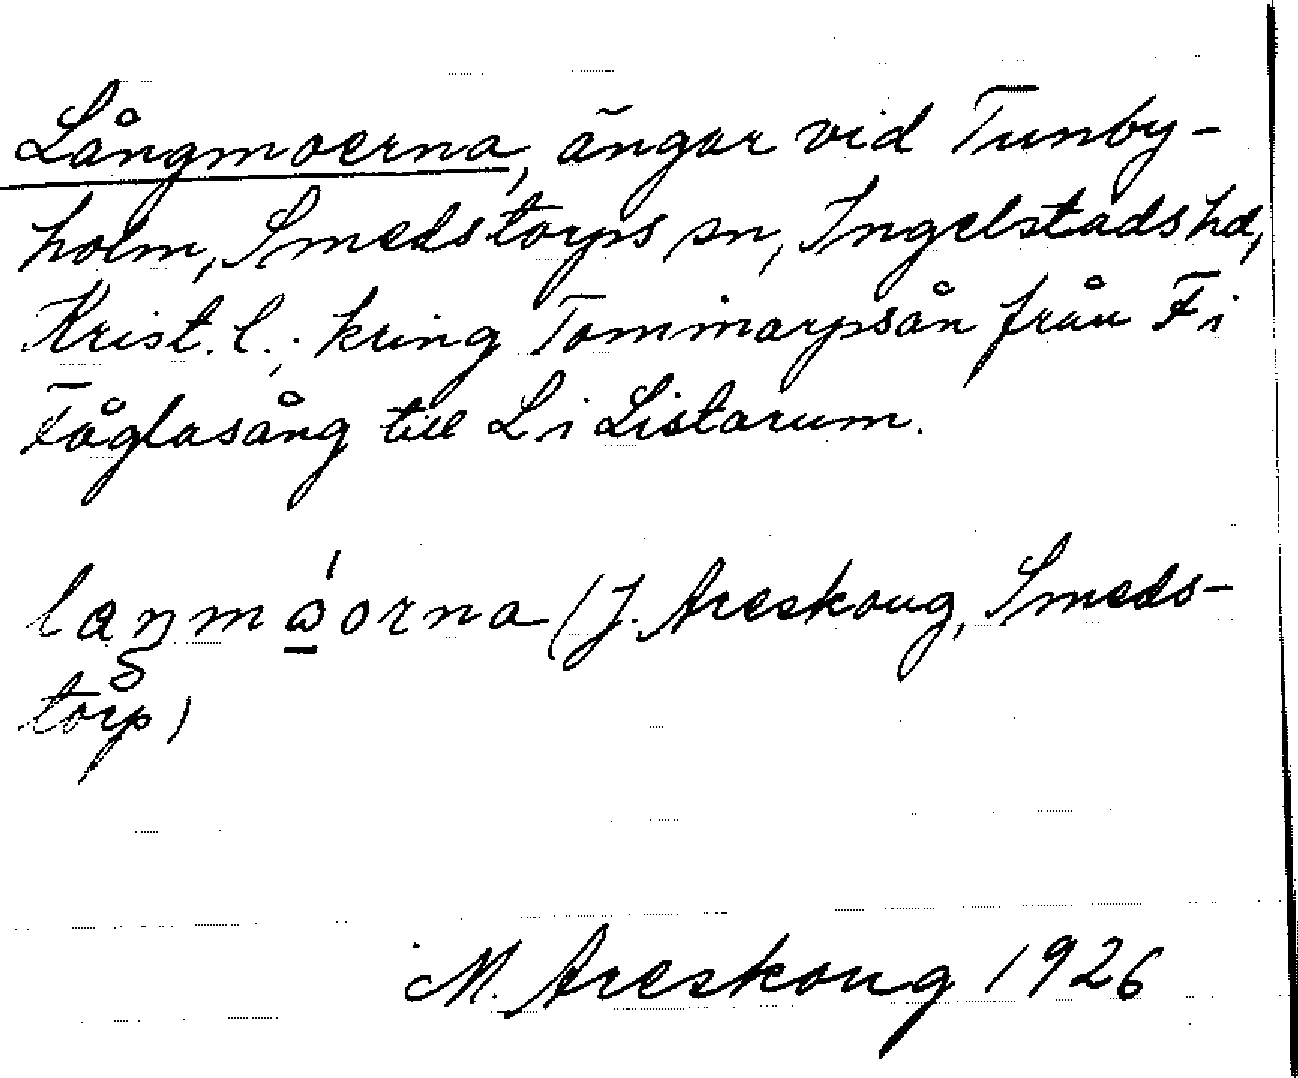 Långmoerna, ängar vid Tunby-
holm, Smedstorps sn, Ingelstads hd,
Krist. l.; kring Tommarpsån från F i
Fåglasång till L i Listarum.
laŋmɷ́orna (J. Areskoug, Smeds-
torp)
M. Areskoug 1926